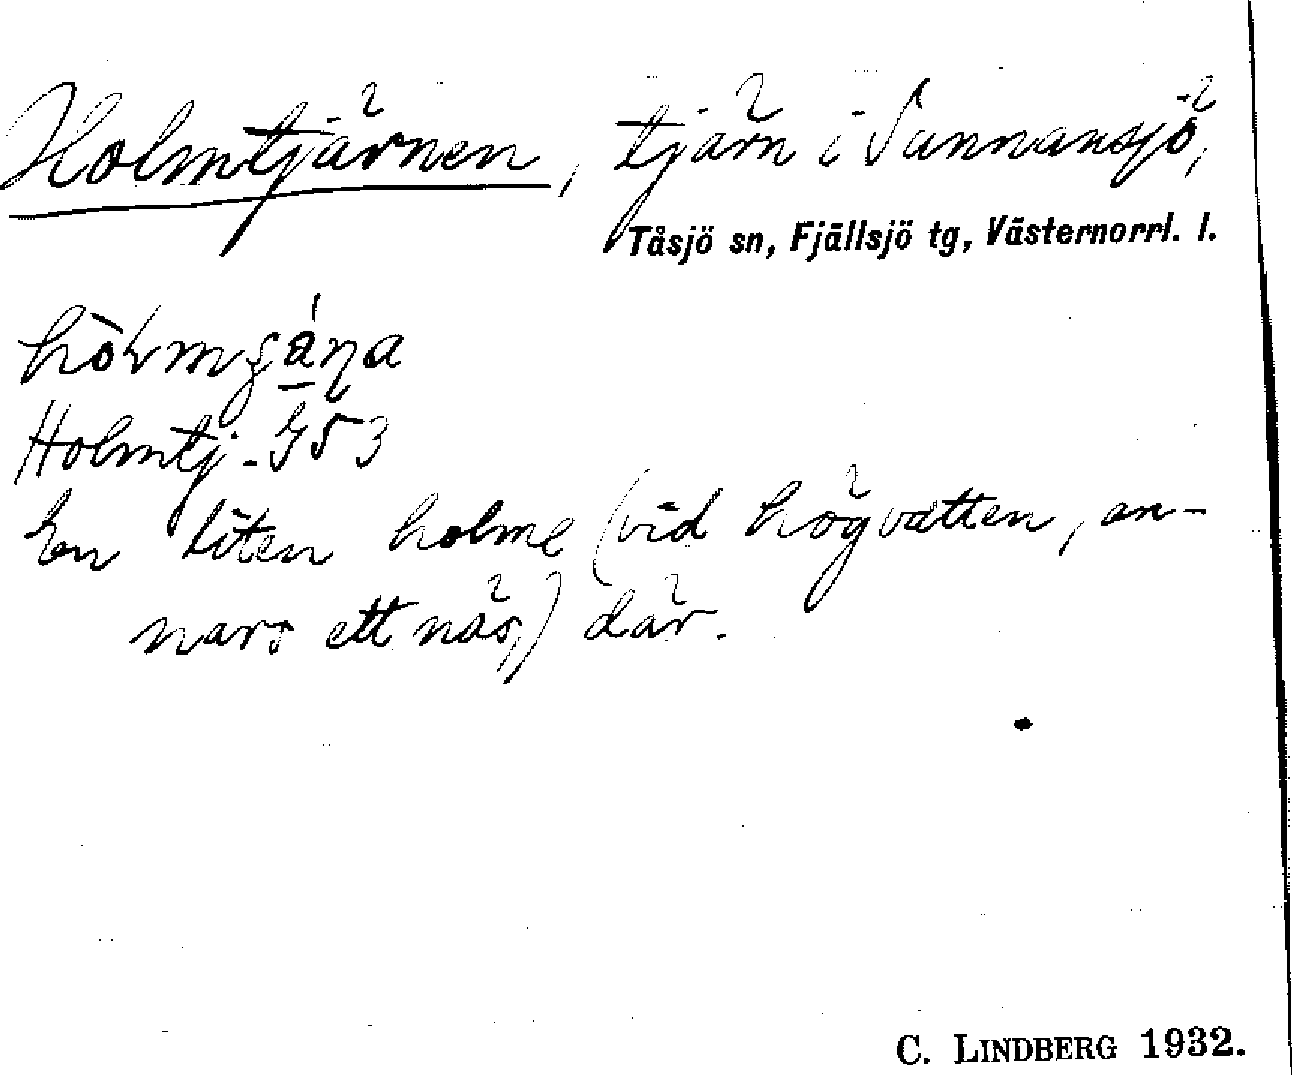 Holmtjärnen, tjärn i Sunnansjö,
Tåsjö sn, Fjällsjö tg, Västernorrl. l.
Holmtj. G53
En liten holme (vid högvatten, an-
nars ett näs,) där.
C. LINDBERG 1932.